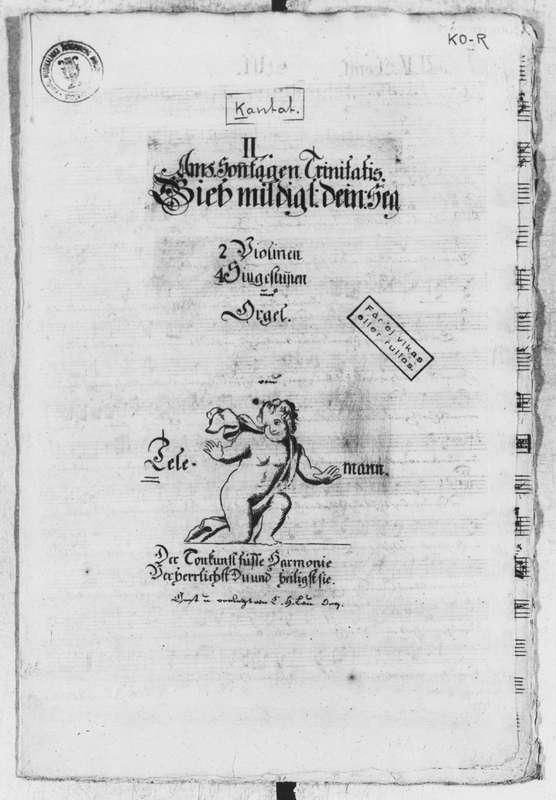 KO-R
Kantat.
II
Am 3. Sontag n. Trinitatis.
Gieb mildigl: dein: Seg
2 Violinen
4 Singestimen
und
Orgel.
Får ej vikas
eller rullas.
von
Tele-
mann.
Der Tonkunst süsse Harmonie
Verherrlichst Du und heiligst sie.
C. H. Lau Org.